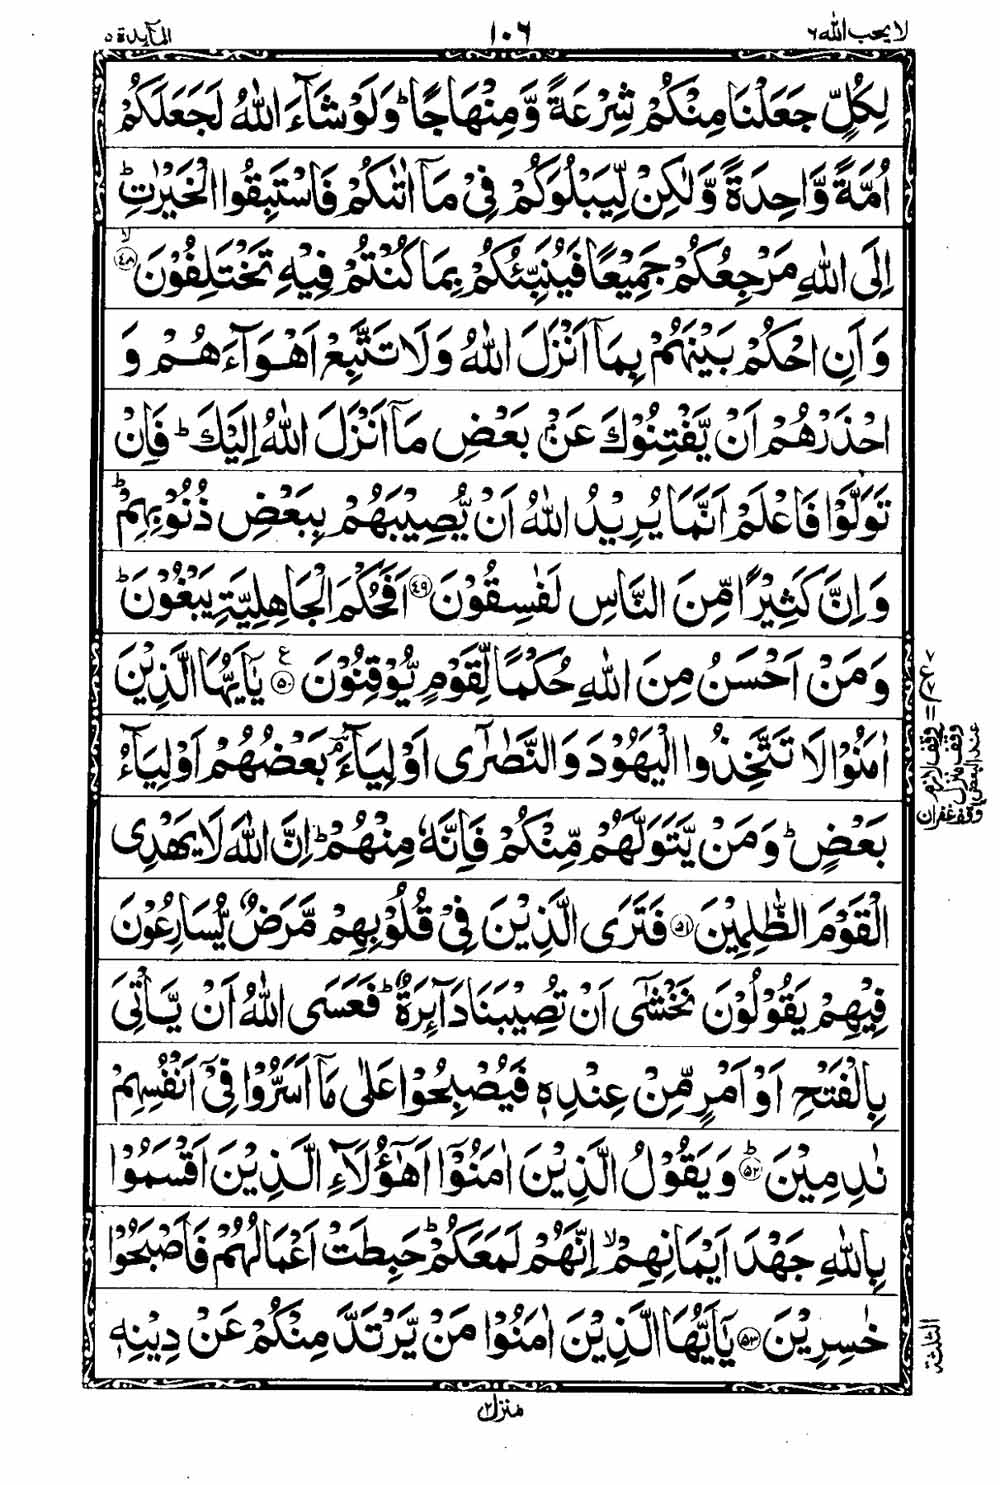 لا يحب الله ٦
١٠٦
المآيدة ٥
لِكُلٍّ جَعَلْنَا مِنْكُمْ شِرْعَةً وَّمِنْهَاجًا ؕ وَلَوْ شَآءَ اللّٰهُ لَجَعَلَكُمْ
اُمَّةً وَّاحِدَةً وَّلٰكِنْ لِّيَبْلُوَكُمْ فِيْ مَاۤ اٰتٰىكُمْ فَاسْتَبِقُوا الْخَيْرٰتِ ؕ
اِلَى اللّٰهِ مَرْجِعُكُمْ جَمِيْعًا فَيُنَبِّئُكُمْ بِمَا كُنْتُمْ فِيْهِ تَخْتَلِفُوْنَ ۙ ﴿٤٨﴾
وَاَنِ احْكُمْ بَيْنَهُمْ بِمَاۤ اَنْزَلَ اللّٰهُ وَلَا تَتَّبِعْ اَهْوَآءَهُمْ وَ
احْذَرْهُمْ اَنْ يَّفْتِنُوْكَ عَنْۢ بَعْضِ مَاۤ اَنْزَلَ اللّٰهُ اِلَيْكَ ؕ فَاِنْ
تَوَلَّوْا فَاعْلَمْ اَنَّمَا يُرِيْدُ اللّٰهُ اَنْ يُّصِيْبَهُمْ بِبَعْضِ ذُنُوْبِهِمْ ؕ
وَاِنَّ كَثِيْرًا مِّنَ النَّاسِ لَفٰسِقُوْنَ ﴿٤٩﴾ اَفَحُكْمَ الْجَاهِلِيَّةِ يَبْغُوْنَ ؕ
وَمَنْ اَحْسَنُ مِنَ اللّٰهِ حُكْمًا لِّقَوْمٍ يُّوْقِنُوْنَ ﴿٥٠﴾ ع يٰۤاَيُّهَا الَّذِيْنَ
اٰمَنُوْا لَا تَتَّخِذُوا الْيَهُوْدَ وَالنَّصٰرٰۤى اَوْلِيَآءَ ۘ بَعْضُهُمْ اَوْلِيَآءُ
بَعْضٍ ؕ وَمَنْ يَّتَوَلَّهُمْ مِّنْكُمْ فَاِنَّهٗ مِنْهُمْ ؕ اِنَّ اللّٰهَ لَا يَهْدِى
الْقَوْمَ الظّٰلِمِيْنَ ﴿٥١﴾ فَتَرَى الَّذِيْنَ فِيْ قُلُوْبِهِمْ مَّرَضٌ يُّسَارِعُوْنَ
فِيْهِمْ يَقُوْلُوْنَ نَخْشٰۤى اَنْ تُصِيْبَنَا دَآئِرَةٌ ؕ فَعَسَى اللّٰهُ اَنْ يَّاْتِيَ
بِالْفَتْحِ اَوْ اَمْرٍ مِّنْ عِنْدِهٖ فَيُصْبِحُوْا عَلٰى مَاۤ اَسَرُّوْا فِيْۤ اَنْفُسِهِمْ
نٰدِمِيْنَ ؕ ﴿٥٢﴾ وَيَقُوْلُ الَّذِيْنَ اٰمَنُوْۤا اَهٰۤؤُلَآءِ الَّذِيْنَ اَقْسَمُوْا
بِاللّٰهِ جَهْدَ اَيْمَانِهِمْ ۙ اِنَّهُمْ لَمَعَكُمْ ؕ حَبِطَتْ اَعْمَالُهُمْ فَاَصْبَحُوْا
خٰسِرِيْنَ ﴿٥٣﴾ يٰۤاَيُّهَا الَّذِيْنَ اٰمَنُوْا مَنْ يَّرْتَدَّ مِنْكُمْ عَنْ دِيْنِهٖ
وقف لازم
وقف منزل
عند البعض
وقف غفران
الثلثة
منزل ٢